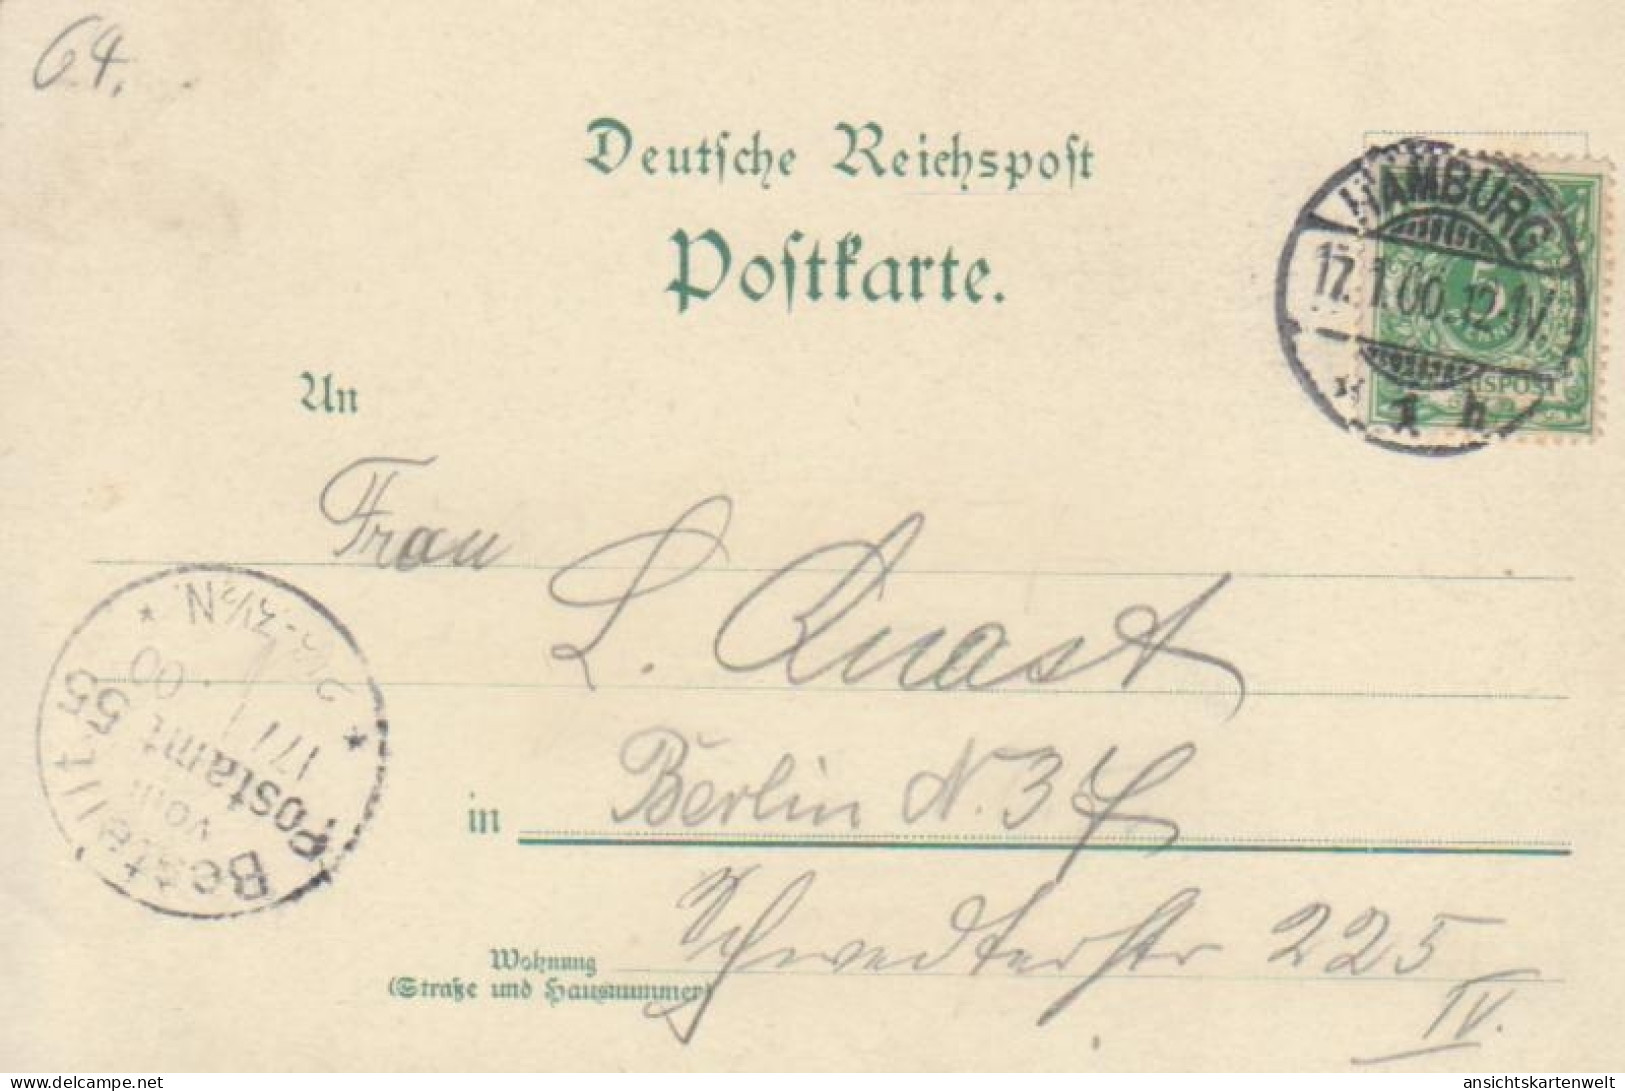 64.
Deutsche Reichspost
Postkarte.
HAMBURG
17.1.00.12-1V.
* 1 h
5
REICHSPOST
An
Frau
L. Quast
in Berlin N. 37
Schwedterstr 225
IV.
Wohnung
(Straße und Hausnummer)
Bestellt
vom
Postamt 55
17 1 00
N.
delcampe.net
ansichtskartenwelt